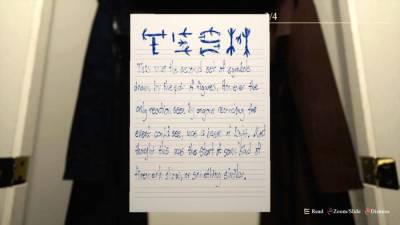 1/4
This was the second set of symbols
drawn by the pair of figures. However the
only reaction seen by anyone recording the
event could see, was a haze of light. Most
thought this was the start of some kind of
firework show, or something similar.
Read Zoom/Slide Dismiss